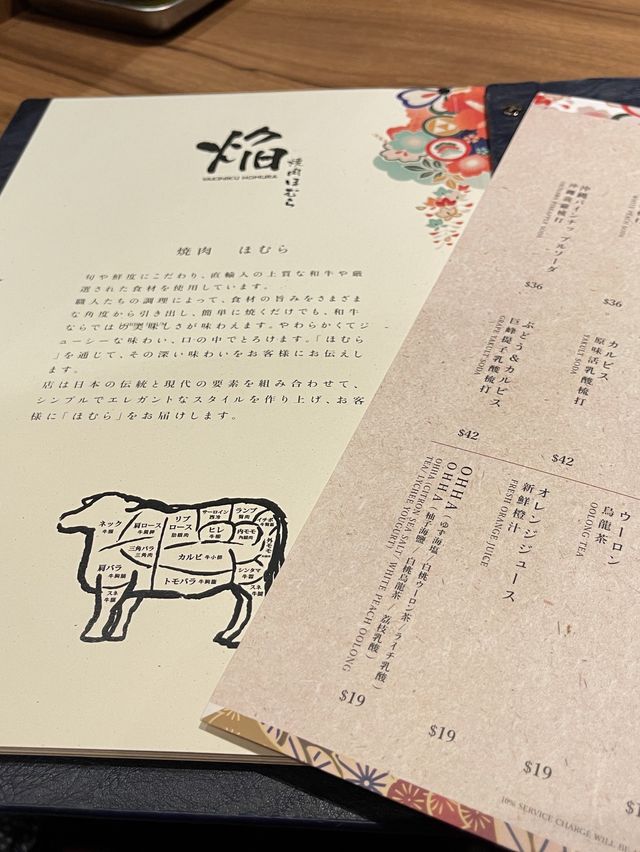 焔
YAKINIKU HOMURA
焼肉ほむら
焼肉 ほむら
旬や鮮度にこだわり、直輸入の上質な和牛や厳
選された食材を使用しています。
職人たちの調理によって、食材の旨みをさまざま
な角度から引き出し、簡単に焼くだけでも、和牛
ならでは
美味しさが味わえます。やわらかくてジ
ューシーな味わい、口の中でとろけます。「ほむら
」を通じて、その深い味わいをお客様にお伝えし
ます。
店は日本の伝統と現代の要素を組み合わせて、
シンプルでエレガントなスタイルを作り上げ、お客
様に「ほむら」をお届けします。
ネック
牛頸
肩ロース
リブ
ロース
肋眼肉
サーロイン
西冷
ランプ
イチボ
ヒレ
牛柳
内モモ
外モモ
三角バラ
三角肉
カルビ 牛小排
シンタマ
肩バラ
牛胸腩
トモバラ 牛胸腹
スネ
スネ
沖縄パインナップルソーダ
沖繩黃菠蘿梳打
OKINAWA PINEAPPLE SODA
$36
$36
カルピス
原味活乳酸梳打
YAKULT SODA
$42
ぶどう&カルピス
巨峰提子乳酸梳打
GRAPE YAKULT SODA
$42
ウーロン
烏龍茶
OOLONG TEA
オレンジジュース
新鮮橙汁
FRESH ORANGE JUICE
OHHA (ゆず海塩 / 白桃ウーロン茶 / ライチ乳酸)
OHHA (柚子海鹽 / 白桃烏龍茶 / 荔枝乳酸)
OHHA (CITRON SEA SALT / WHITE PEACH OOLONG
TEA / LYCHEE YOUGURT)
$19
$19
$19
10% SERVICE CHARGE WILL BE